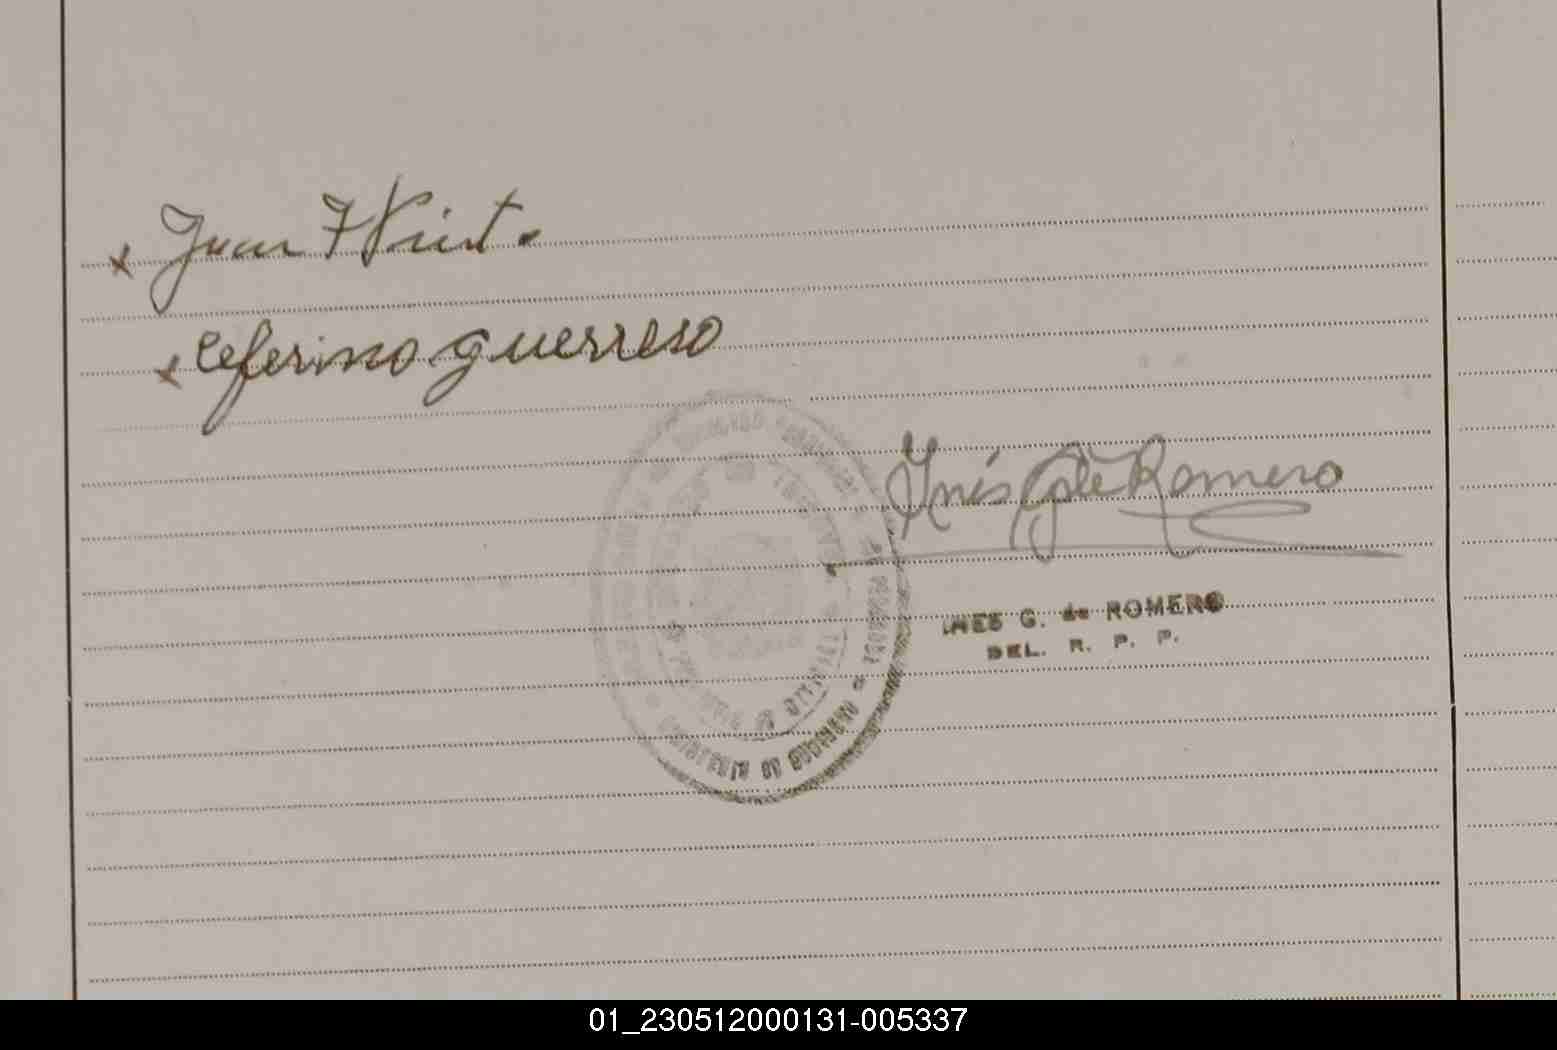 x Juan F Nieto
x Ceferino guerrero
Inés G. de Romero
INES G. de ROMERO
DEL. R. P. P.
01_230512000131-005337